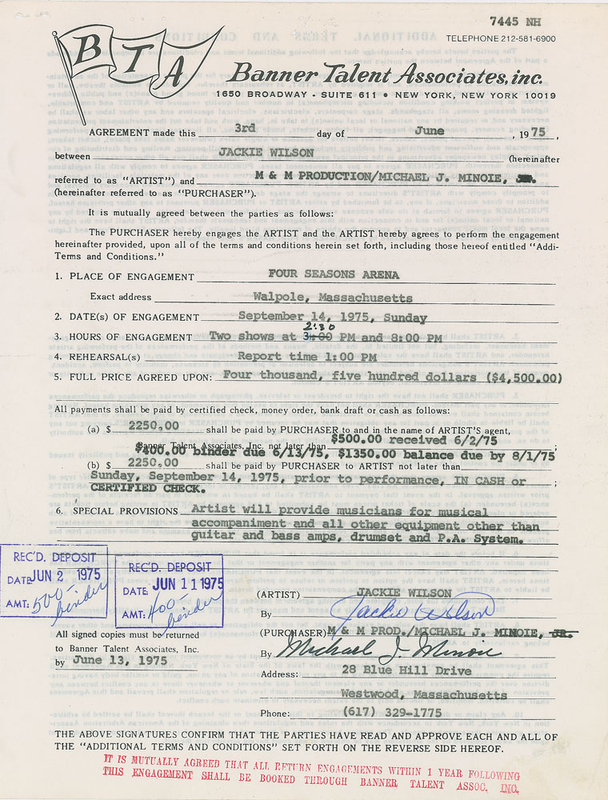 7445 NH
TELEPHONE 212-581-6900
BTA
Banner Talent Associates, inc.
1650 BROADWAY - SUITE 611 • NEW YORK, NEW YORK 10019
AGREEMENT made this 3rd day of June , 1975 ,
between JACKIE WILSON (hereinafter
referred to as "ARTIST") and M & M PRODUCTION/MICHAEL J. MINOIE,
(hereinafter referred to as "PURCHASER").
It is mutually agreed between the parties as follows:
The PURCHASER hereby engages the ARTIST and the ARTIST hereby agrees to perform the engagement
hereinafter provided, upon all of the terms and conditions herein set forth, including those hereof entitled "Addi-
Terms and Conditions."
1. PLACE OF ENGAGEMENT FOUR SEASONS ARENA
Exact address Walpole, Massachusetts
2. DATE(S) OF ENGAGEMENT September 14, 1975, Sunday
2:30
3. HOURS OF ENGAGEMENT Two shows at 3:00 PM and 8:00 PM
4. REHEARSAL(s) Report time 1:00 PM
5. FULL PRICE AGREED UPON: Four thousand, five hundred dollars ($4,500.00)
All payments shall be paid by certified check, money order, bank draft or cash as follows:
(a) $ 2250.00 shall be paid by PURCHASER to and in the name of ARTIST'S agent,
Banner Talent Associates, Inc. not later than $500.00 received 6/2/75 ;
$400.00 binder due 6/13/75, $1350.00 balance due by 8/1/75
(b) $ 2250.00 shall be paid by PURCHASER to ARTIST not later than
Sunday, September 14, 1975, prior to performance, IN CASH or ;
CERTIFIED CHECK.
6. SPECIAL PROVISIONS Artist will provide musicians for musical
accompaniment and all other equipment other than
guitar and bass amps, drumset and P.A. System.
REC'D. DEPOSIT
DATE JUN 2 1975
AMT: 500 - binder
REC'D. DEPOSIT
DATE JUN 11 1975
AMT: 400 - binder
(ARTIST) JACKIE WILSON
By Jackie Wilson
(PURCHASER) M & M PROD./MICHAEL J. MINOIE, JR.
By Michael J Minoie
All signed copies must be returned
to Banner Talent Associates, Inc.
by June 13, 1975
Address: 28 Blue Hill Drive
Westwood, Massachusetts
Phone: (617) 329-1775
THE ABOVE SIGNATURES CONFIRM THAT THE PARTIES HAVE READ AND APPROVE EACH AND ALL OF
THE "ADDITIONAL TERMS AND CONDITIONS" SET FORTH ON THE REVERSE SIDE HEREOF.
IT IS MUTUALLY AGREED THAT ALL RETURN ENGAGEMENTS WITHIN 1 YEAR FOLLOWING
THIS ENGAGEMENT SHALL BE BOOKED THROUGH BANNER TALENT ASSOC, INC.